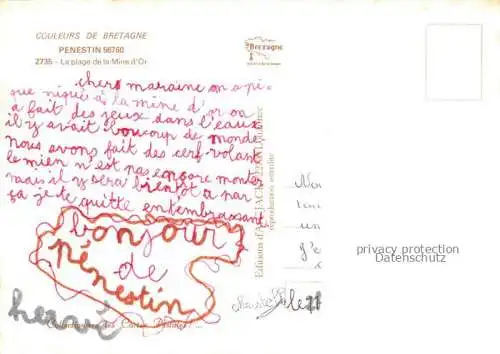 COULEURS DE BRETAGNE
PENESTIN 56760
2735 - La plage de la Mine d'Or
Bretagne
chers maraine on a pi-
que niqué à la mine d'or oa
a fait des jeux dans l'eaux
il y avait boucoup de monde
nous avons fait des cerf-volant
le mien n'est pas encore monter
mais il y sera bientôt a par
ça je te quitte entembrassant
bonjour
de
pénestin
hervé
Editions d'Art JACK
reproduction interdite
privacy protection
Datenschutz